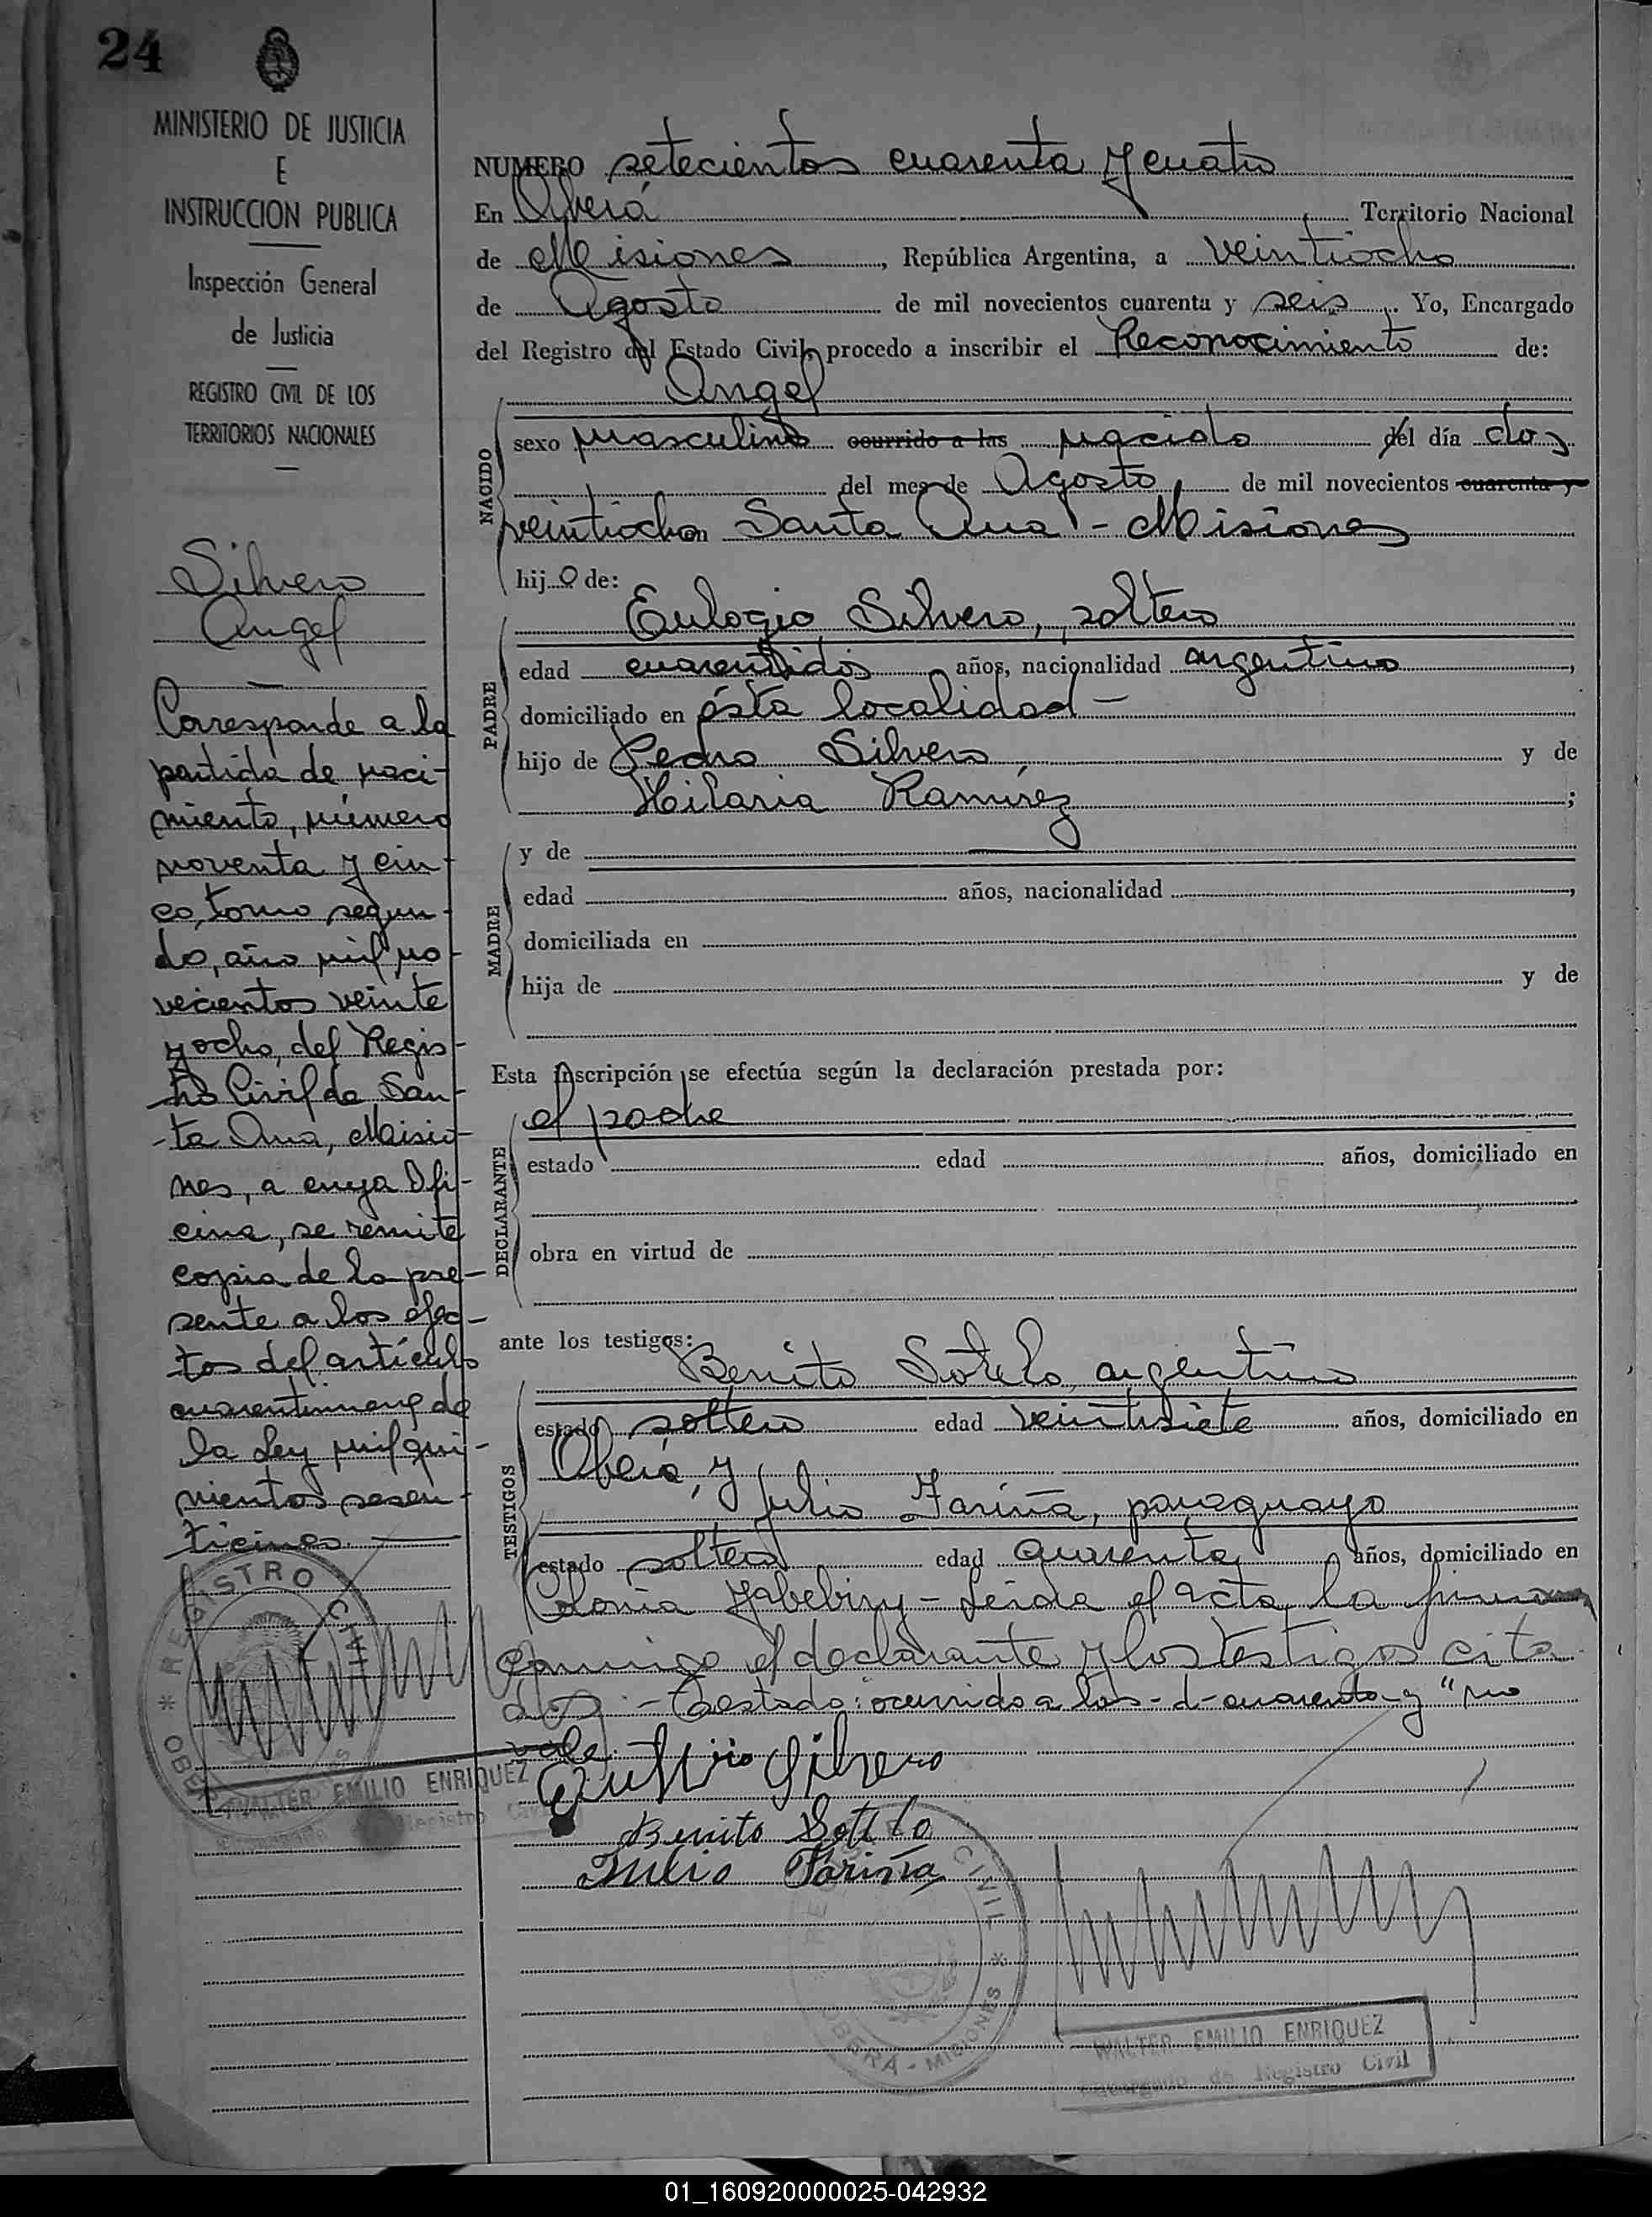 24
MINISTERIO DE JUSTICIA
E
INSTRUCCION PUBLICA
Inspección General
de Justicia
REGISTRO CIVIL DE LOS
TERRITORIOS NACIONALES
Silvero
Angel
Corresponde a la
partida de naci-
miento, número
noventa y cin-
co, tomo segun-
do, año mil no-
vecientos veinte
y ocho, del Regis-
tro Civil de San-
ta Ana, Misio-
nes, a cuya Ofi-
cina, se remite
copia de la pre-
sente a los efec-
tos del artículo
cuarentinueve de
la Ley mil qui-
nientos sesen-
ticinco.
REGISTRO CIVIL
WALTER EMILIO ENRIQUEZ
NUMERO setecientos cuarenta y cuatro
En Oberá Territorio Nacional
de Misiones, República Argentina, a veintiocho
de Agosto de mil novecientos cuarenta y seis. Yo, Encargado
del Registro del Estado Civil, procedo a inscribir el Reconocimiento de:
Angel
NACIDO
sexo masculino ocurrido a las nacido del día dos
del mes de Agosto de mil novecientos cuarenta y
veintiocho en Santa Ana - Misiones
hijo de:
PADRE
Eulogio Silvero, soltero
edad cuarentidós años, nacionalidad argentino,
domiciliado en ésta localidad -
hijo de Pedro Silvero y de
Hilaria Ramírez;
MADRE
y de
edad años, nacionalidad ,
domiciliada en
hija de y de
Esta inscripción se efectúa según la declaración prestada por:
DECLARANTE
el padre
estado edad años, domiciliado en
obra en virtud de
ante los testigos:
TESTIGOS
Benito Sotelo, argentino
estado soltero edad veintisiete años, domiciliado en
Oberá, y
Julio Fariña, paraguayo
estado soltero edad cuarenta años, domiciliado en
Colonia Yabebiry - Leída el acta, la firman
conmigo el declarante y los testigos cita-
dos. - Testado: "ocurrido a las - d - cuarenta y" no
vale.
Silvero
Benito Sotelo
Julio Fariña
REGISTRO CIVIL * OBERÁ - MISIONES *
WALTER EMILIO ENRIQUEZ
Encargado de Registro Civil
01_160920000025-042932